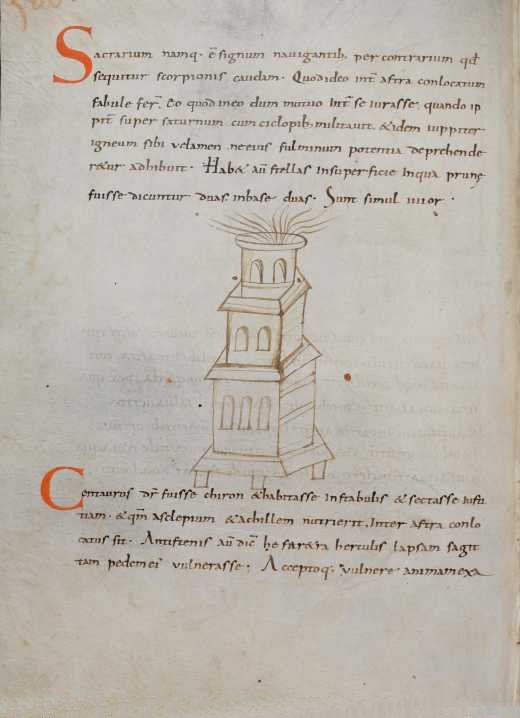 Sacrarium namq. ē signum nauigantib; per contrarium qđ
sequitur scorpionis caudam. Quod ideo inť astra conlocatum
fabule fer̄. Eo quod in eo dum mutuo Inť se iurasse, quando ip
piť super saturnum cum ciclopib; militauit. & idem iuppiter
igneum sibi uelamen ne eius fulminum potentia deprehende
r&ur adhibuit. Hab& aū stellas In superficie In qua prunę
fuisse dicuntur duas. in base duas. Sunt simul IIIIor.
Centaurus dr̄ fuisse chiron & habitasse In stabulis & sectasse iusti
tiam. & qm̄ asclepium & achillem nutrierit. Inter astra conlo
catus sit. Antistenis aū dic̄ h&
herculis lapsam sagit
tam pedem ei uulnerasse; Acceptoq; uulnere animam exa